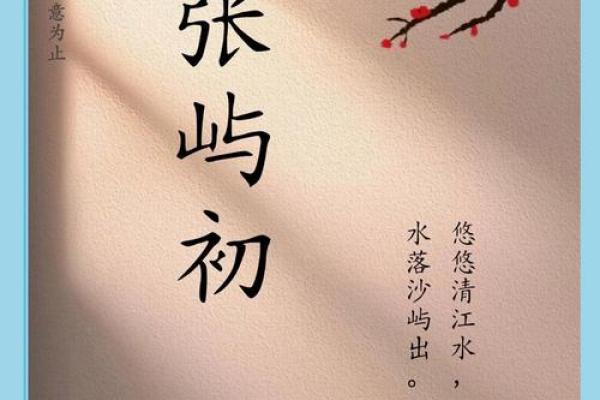 张屿初
悠悠清江水，
水落沙屿出。
意为止